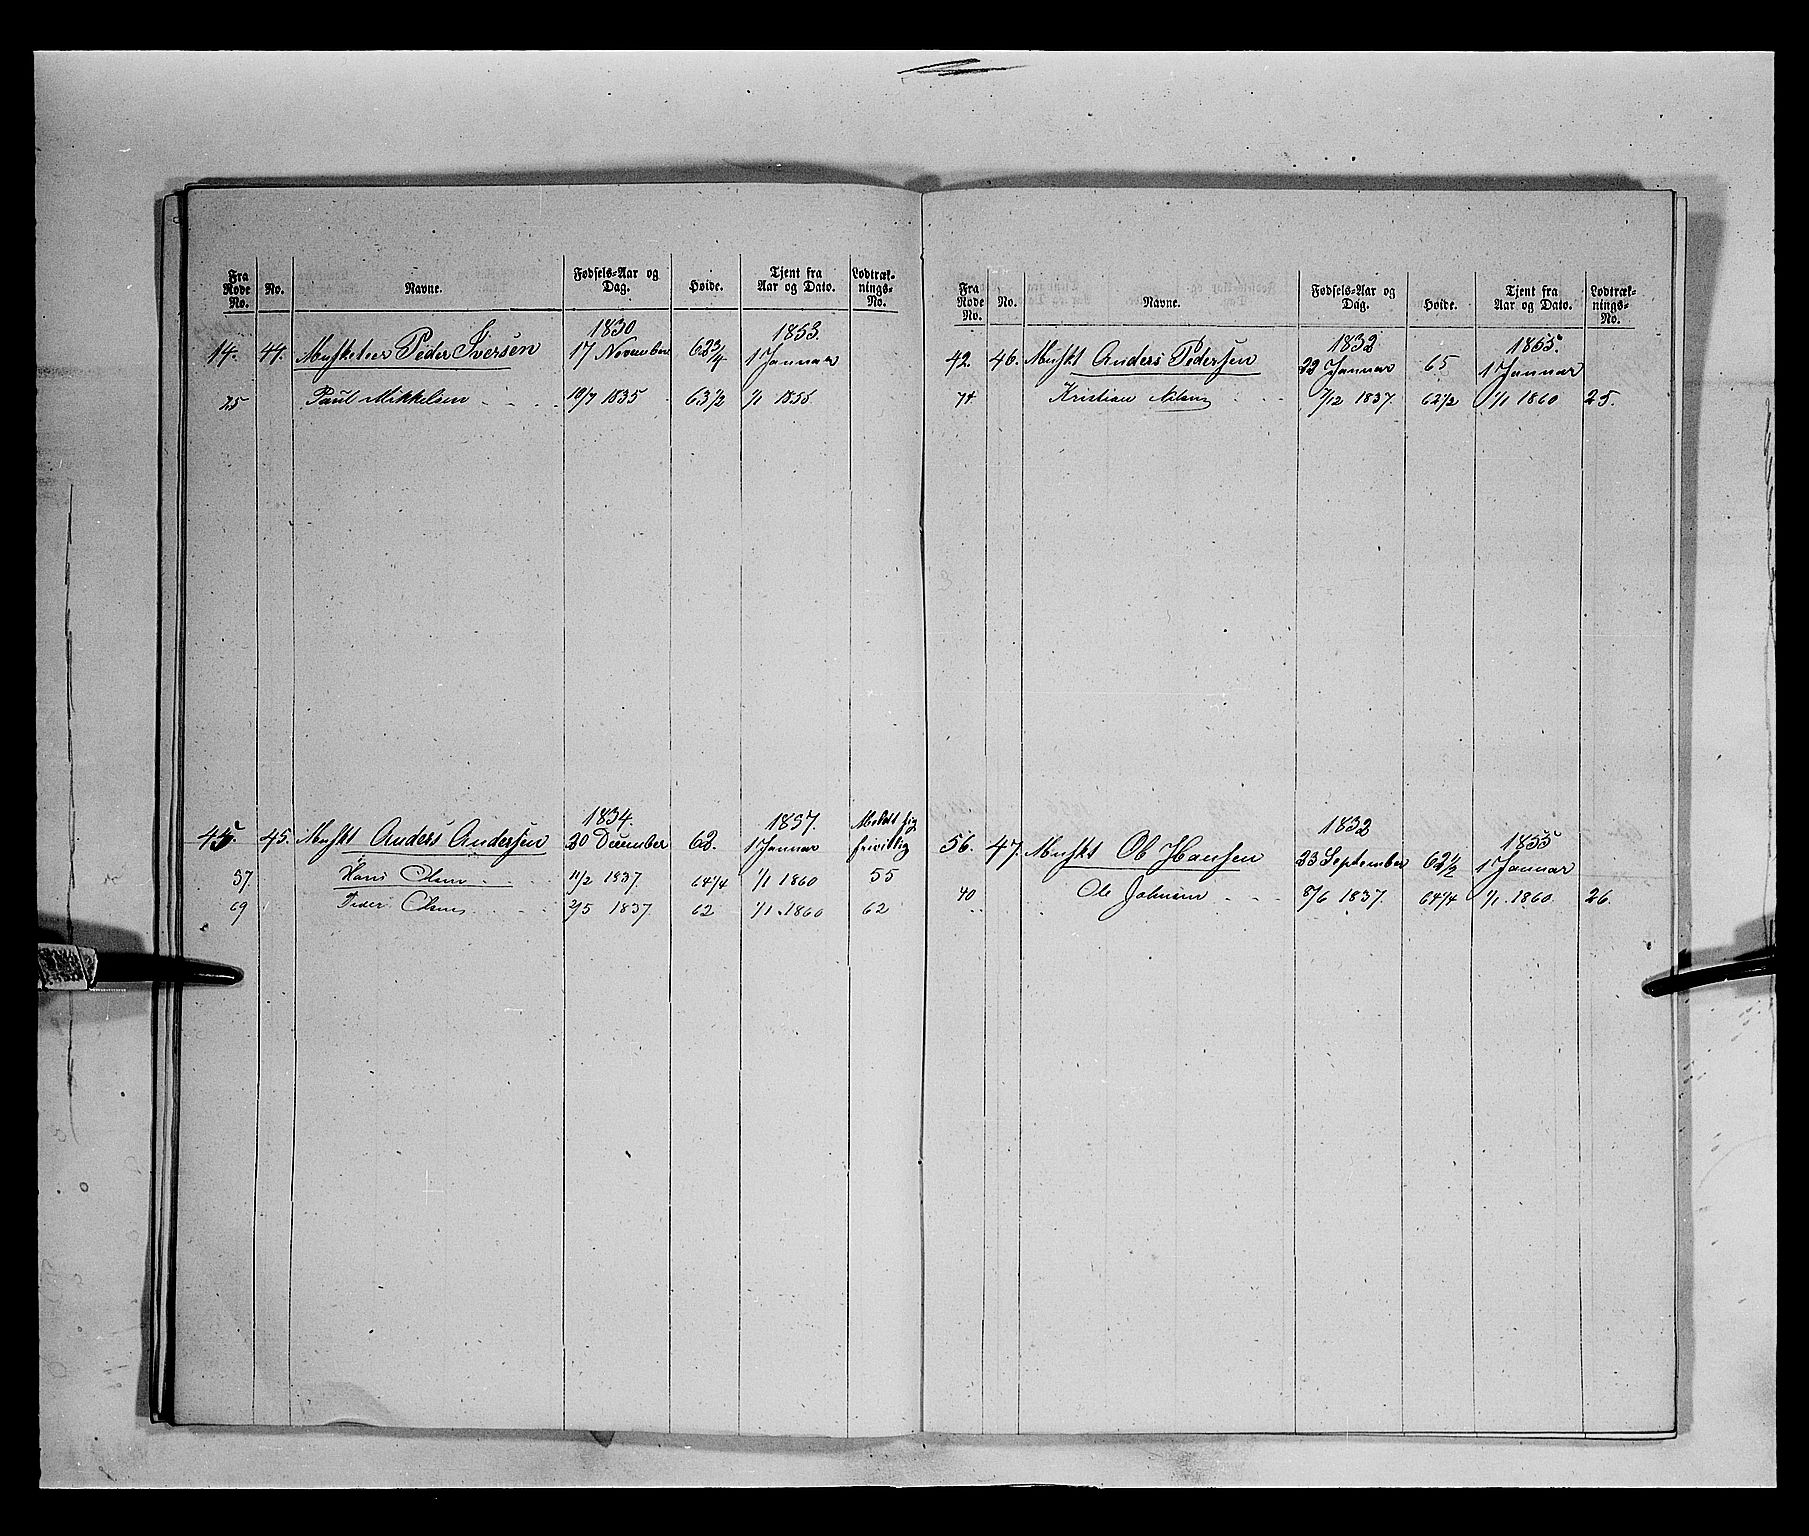 Fra Rode No. No. Navne. Fødsels-Aar og Dag. Høide. Tjent fra Aar og Dato. Lodtræknings-No.
1830 1853.
14. 44. Musketeer Peder Iversen 17 November 62 3/4 1 Januar
25 Paul Mikkelsen 10/7 1835 63 1/2 1/1 1855
1834. 1857. Meldt sig
45. 45. Muskt Anders Andersen 20 December 62. 1 Januar frivillig
37. Hans Olsen 11/2 1837. 64 1/4 1/1 1860 55
69 Peder Olsen 2/5 1837. 62 1/1 1860 62
Fra Rode No. No. Navne. Fødsels-Aar og Dag. Høide. Tjent fra Aar og Dato. Lodtræknings-No.
1832 1855.
42. 46. Muskt Anders Pedersen 22 Januar 65 1 Januar
74. Kristian Nilsen 7/12 1837. 62 1/2 1/1 1860 25.
1832 1855
56. 47. Muskt Ole Hansen 23 September 62 1/2 1 Januar
40 Ole Johnsen 8/6 1837. 64 1/4 1/1 1860. 26.